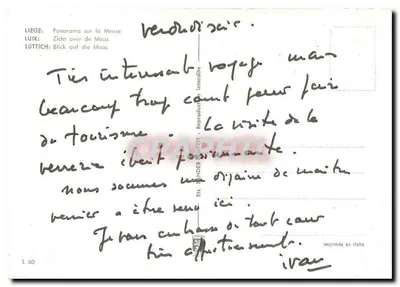 LIEGE: Panorama sur la Meuse
LUIK: Zicht over de Maas
LÜTTICH: Blick auf die Maas
vendredi soir.
Très interessant voyage mais
beaucoup trop court pour faire
du tourisme. La visite de la
verrerie était passionnante.
Nous sommes une dizaine de maîtres
verrier a être venu ici.
Je vous embrasse de tout cœur
très affectueusement.
ivan
Reproduction interdite
L 60